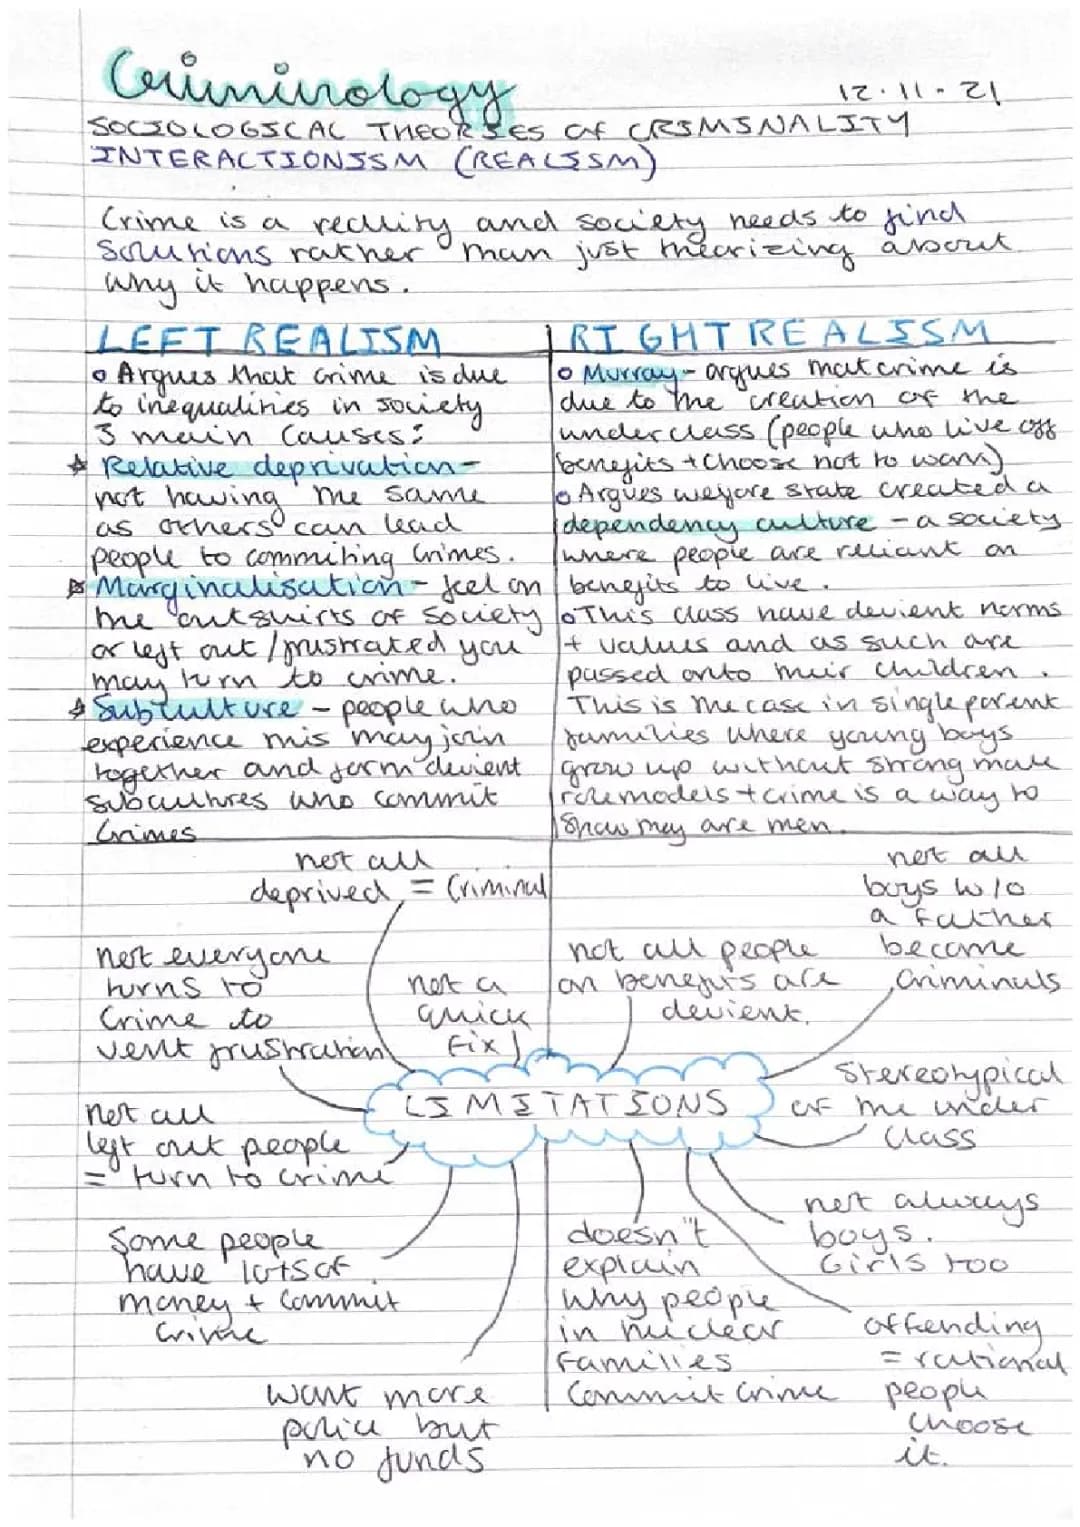 Criminology
12.11.21
SOCIOLOGICAL THEORIES OF CRIMINALITY
INTERACTIONISM (REALISM)
Crime is a reality and society needs to find
solutions rather than just thearizing about
why it happens.
LEFT REALISM
o Argues that crime is due
to inequalities in society
3 main causes:
Relative deprivation -
not having the same
as others can lead
people to commiting crimes.
Marginalisation - feel on
the outskirts of society
or left out / frustrated you
may turn to crime.
Subculture - people who
experience this may join
together and form devient
subcultures who commit
crimes
RIGHT REALISM
o Murray - argues that crime is
due to the creation of the
underclass (people who live off
benefits + choose not to work)
o Argues welfare state created a
dependency culture - a society
where people are reliant on
benefits to live.
o This class have devient norms
+ values and as such are
passed onto their children.
This is the case in single parent
families where young boys
grow up without strong male
rolemodels + crime is a way to
show they are men.
not all
deprived = criminal
not everyone
turns to
crime to
vent frustration
not a
quick
fix
not all people
on benefits are
devient.
not all
boys w/o
a father
become
criminals
LIMITATIONS
Stereotypical
of the under
class
not all
left out people
= turn to crime
Some people
have lots of
money + commit
crime
want more
police but
no funds
doesn't
explain
why people
in nuclear
families
commit crime
not always
boys.
Girls too
offending
= rational
people
choose
it.